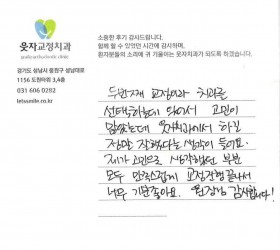 웃자교정치과
wutja orthodontic clinic
경기도 성남시 중원구 성남대로
1156 도원타워 3,4층
031 606 0282
letsumile.co.kr
소중한 후기 감사드립니다.
함께 할 수 있었던 시간에 감사하며,
환자분들의 소리에 귀 기울이는 웃자치과가 되도록 하겠습니다.
두번째 교정이라 치과를
선택하는데 있어서 고민이
많았는데 웃자치과에서 하길
정말 잘했다는 생각이 들어요.
제가 고민으로 생각했던 부분
모두 만족스럽게 교정진행 끝나서
너무 기분좋아요. 원장님 감사합니다!